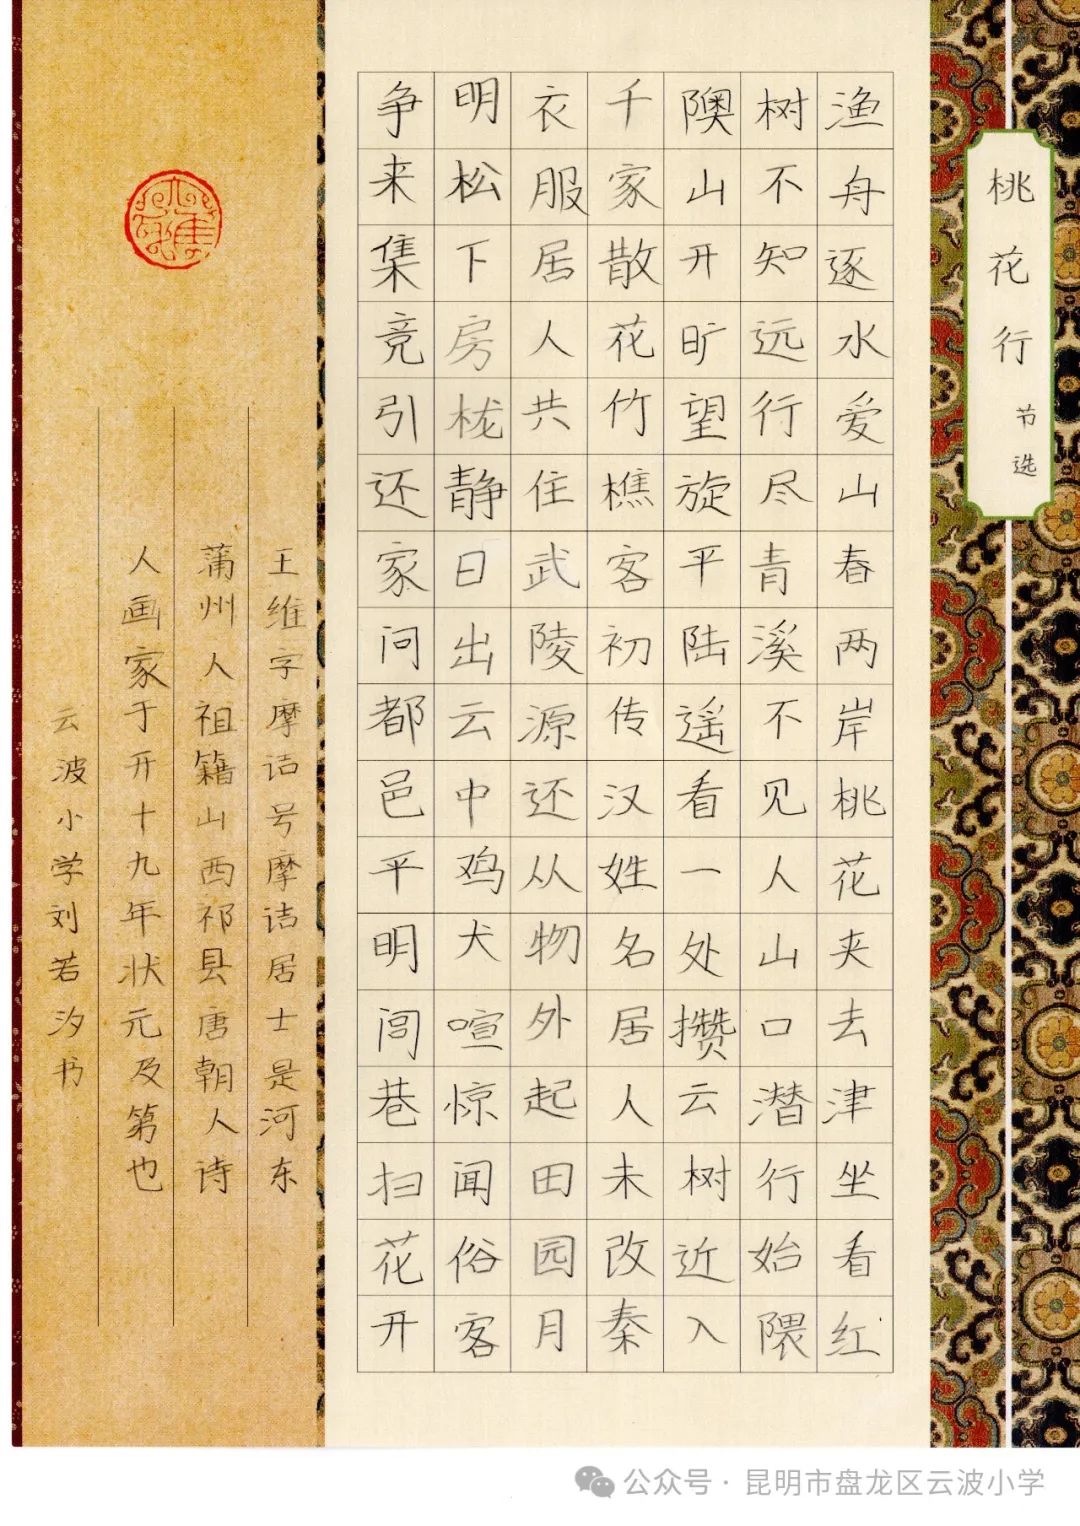 桃花行
节选
渔舟逐水爱山春两岸桃花夹去津坐看红
树不知远行尽青溪不见人山口潜行始隈
隩山开旷望旋平陆遥看一处攒云树近入
千家散花竹樵客初传汉姓名居人未改秦
衣服居人共住武陵源还从物外起田园月
明松下房栊静日出云中鸡犬喧惊闻俗客
争来集竞引还家问都邑平明闾巷扫花开
王维字摩诘号摩诘居士是河东
蒲州人祖籍山西祁县唐朝人诗
人画家于开十九年状元及第也
云波小学刘若汐书
公众号 · 昆明市盘龙区云波小学